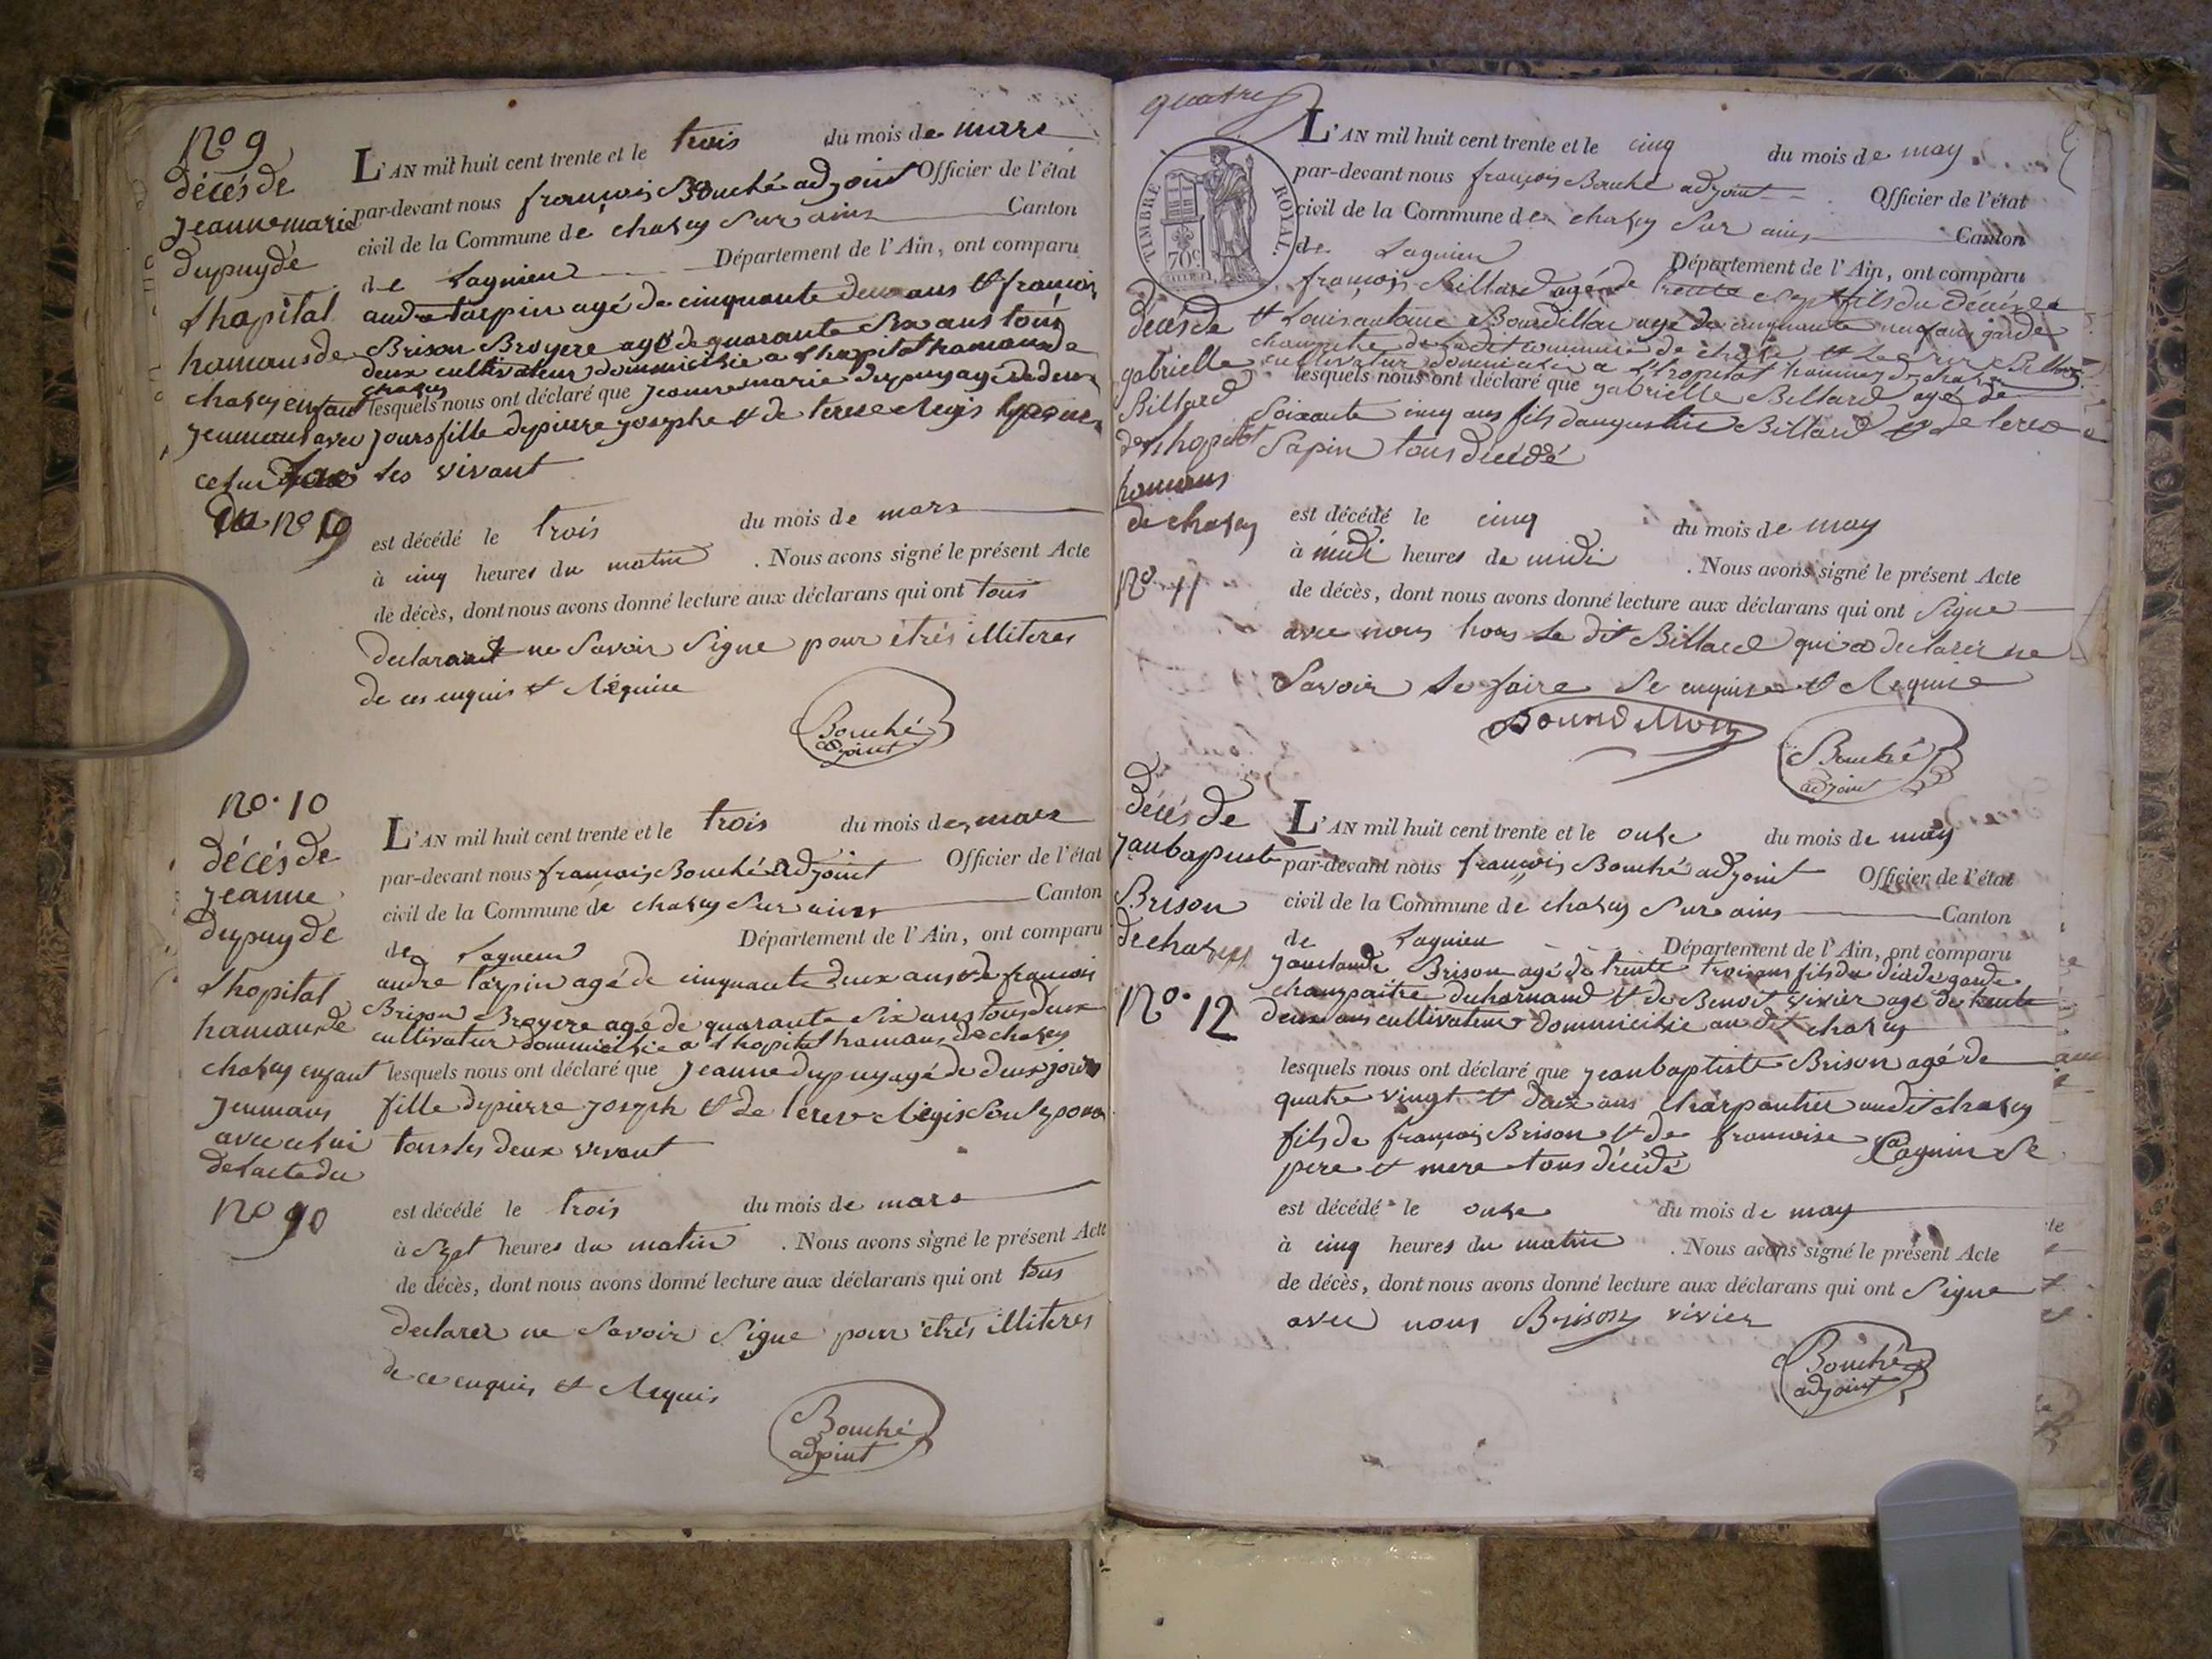 No 9
décès de
jeanne marie
dupuy de
Lhopital
hamaus de
chazey enfant
jeumau avec
celui
No 10
L'AN mil huit cent trente et le trois du mois de mars
par-devant nous françois Bouché adjoint Officier de l'état
civil de la Commune de chazey sur ains Canton
de Lagnieu Département de l'Ain, ont comparu
andre tarpin agé de cinquante deux ans et françois
Brison Broyere agé de quarante six ans tous
deux cultivateur dommicilie a Lhopital hamaux de
chazey
lesquels nous ont déclaré que jeanne marie dupuy agé de deux
jours fille de pierre josephe et de terese Regis
les vivant
est décédé le trois du mois de mars
à cinq heures du matin . Nous avons signé le présent Acte
de décès, dont nous avons donné lecture aux déclarans qui ont tous
declarant ne Savoir Signe pour étrés illiteres
de ces enquis et Réquise
Bouché
adjoint
No. 10
décès de
jeanne
dupuy de
Lhopital
hamau de
chazey enfant
jeumaus
avec celui
de lacte du
No 9
L'AN mil huit cent trente et le trois du mois de mars
par-devant nous françois Bouché adjoint Officier de l'état
civil de la Commune de chazey sur ains Canton
de Lagnieu Département de l'Ain, ont comparu
andre tarpin agé de cinquante deux ans et de françois
Brison Broyere agé de quarante six ans tous deux
cultivatur dommicilie a Lhopital hamaus de chazey
lesquels nous ont déclaré que jeanne dupuy agé de deux jours
fille de pierre joseph et de terese Régis
tous les deux vivant
est décédé le trois du mois de mars
à Sept heures du matin . Nous avons signé le présent Acte
de décès, dont nous avons donné lecture aux déclarans qui ont tous
declarer ne Savoir Signe pour étrés illiteres
de ce enquis et Requis
Bouché
adjoint
quatre
TIMBRE ROYAL
70 c
décès de
gabrielle
Billard
de Lhopital
hamaus
de chazey
No. 11
L'AN mil huit cent trente et le cinq du mois de may
par-devant nous françois Bouché adjoint Officier de l'état
civil de la Commune de chazey sur ains Canton
de Lagnieu Département de l'Ain, ont comparu
françois Billard agé de trente sept fils du décédé
et Louis antoine Bourdillon agé de cinquante neuf ans garde
champetre de la dit commune de chazey et Billard
cultivatur dommicilie a Lhopital hamaus de chazey
lesquels nous ont déclaré que gabrielle Billard agé de
Soixante cinq ans fils daugustin Billard et de terese
Sapin tous décédé
est décédé le cinq du mois de may
à midi heures de midi . Nous avons signé le présent Acte
de décès, dont nous avons donné lecture aux déclarans qui ont Signe
avec nous hors Le dit Billard qui a declarer ne
Savoir Le faire de enquise et Requise
Bourdillon
Bouché
adjoint
décès de
jan bapiste
Brison
de chazey
No. 12
L'AN mil huit cent trente et le onze du mois de may
par-devant nous françois Bouché adjoint Officier de l'état
civil de la Commune de chazey sur ains Canton
de Lagnieu Département de l'Ain, ont comparu
jan claude Brison agé de trente trois ans fils du décédé garde
champaitre et de Benoit vivier agé de trente
deux ans cultivateur dommicilie au dit chazey
lesquels nous ont déclaré que jean baptiste Brison agé de
quatre vingt et deux ans charpantier au dit chazey
fils de françois Brison et de francoise Cagnin Se
pere et mere tous décédé
est décédé le onze du mois de may
à cinq heures du matin . Nous avons signé le présent Acte
de décès, dont nous avons donné lecture aux déclarans qui ont Signe
avec nous Brison vivier
Bouché
adjoint